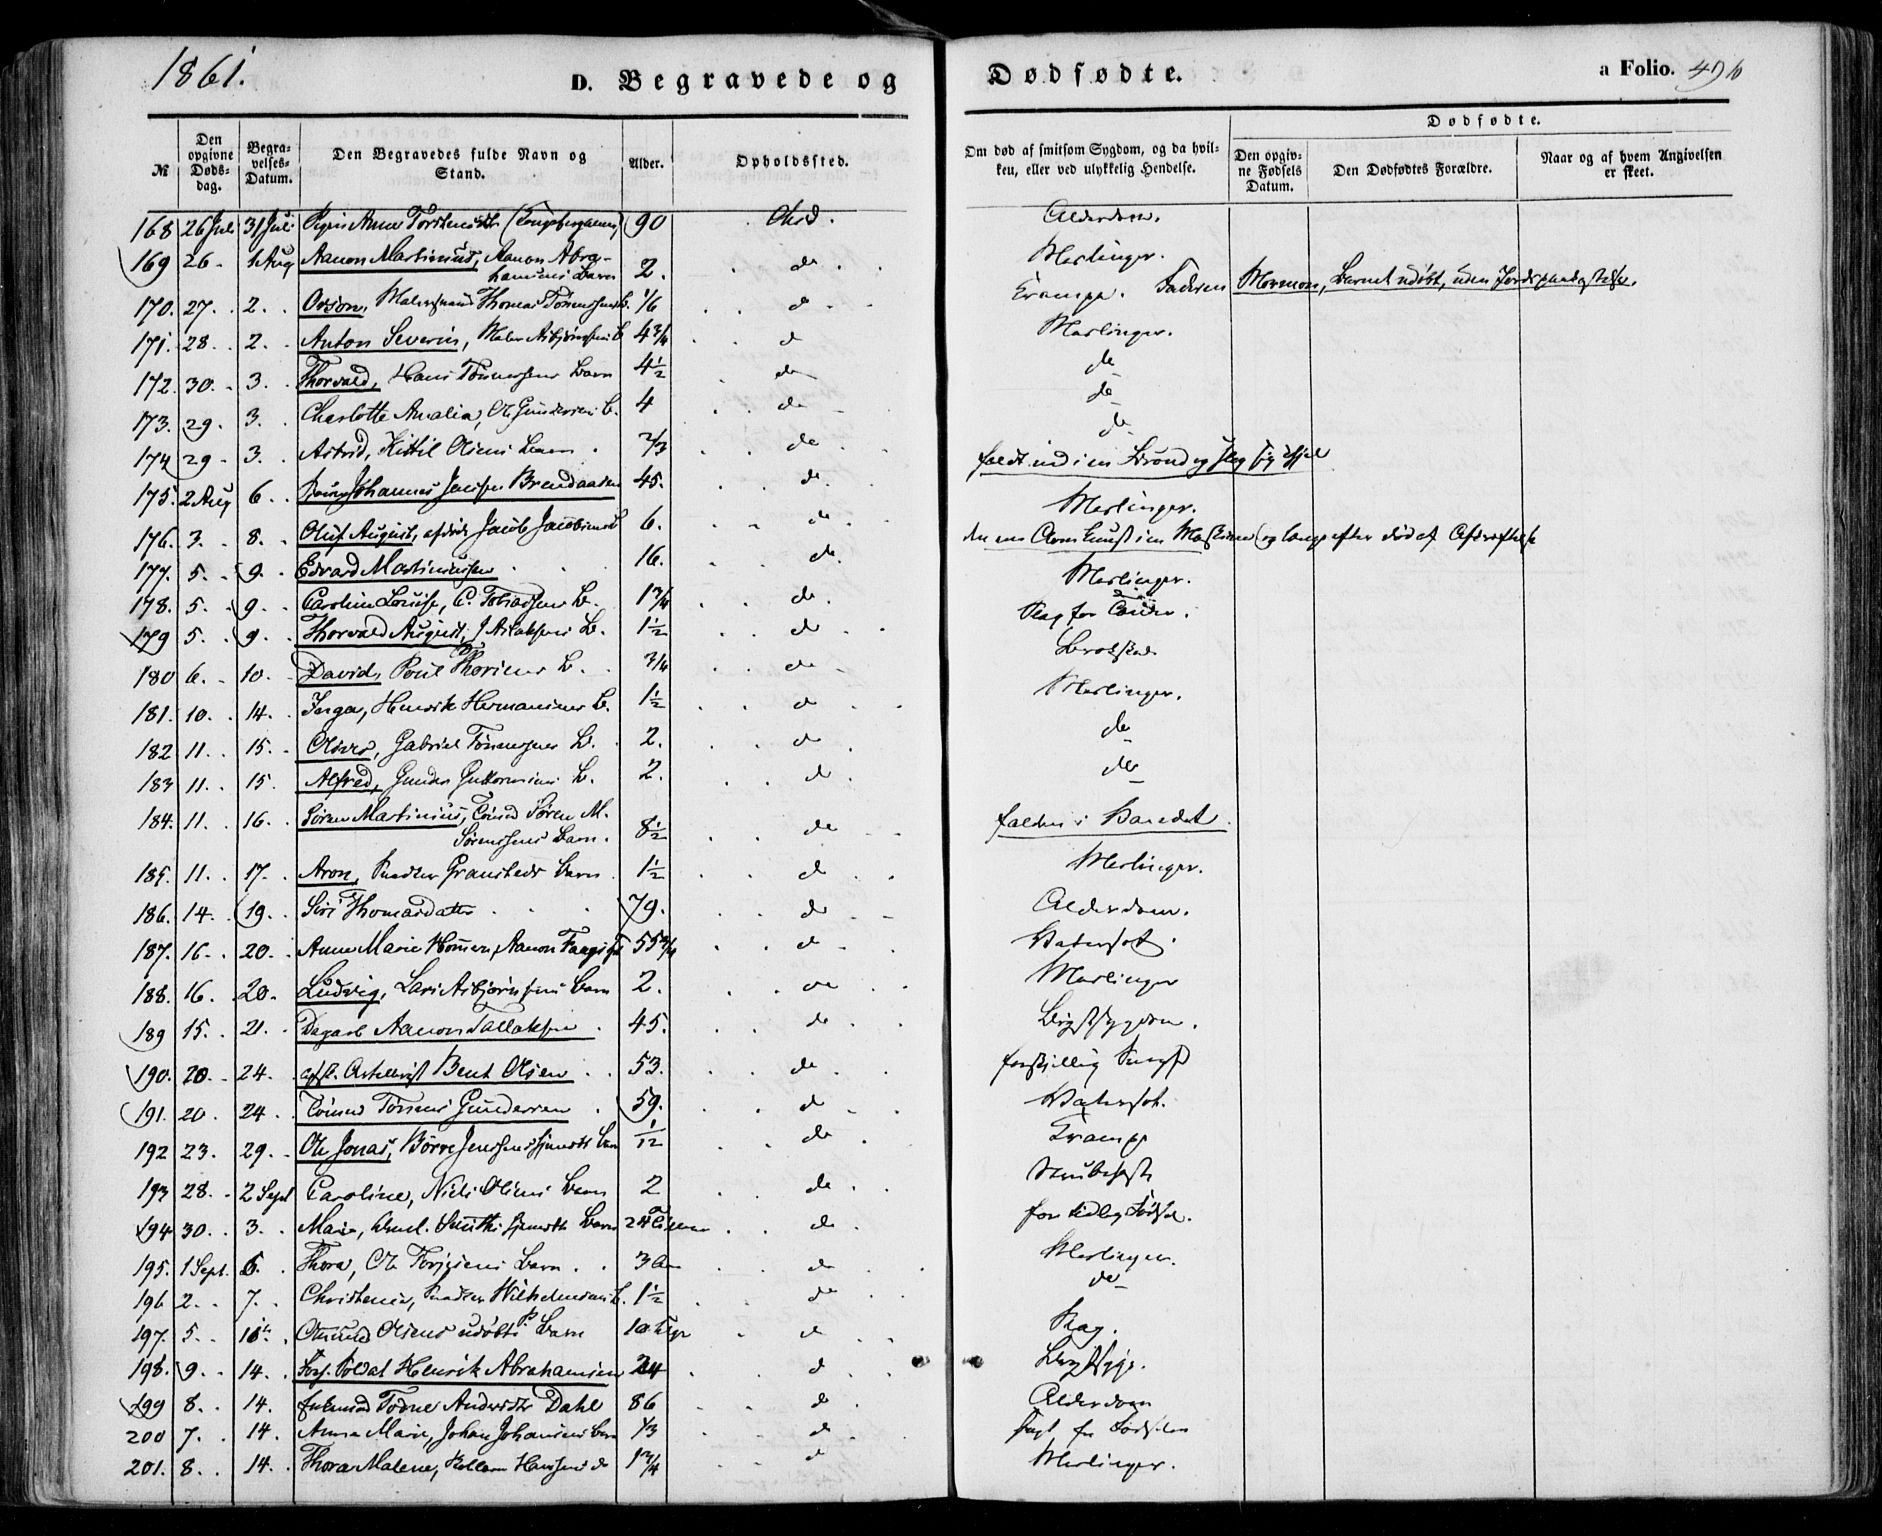 1861.
D. Begravede og Dødfødte.
a Folio. 496
№
Den opgivne Døds-dag.
Begra-velses-Datum.
Den Begravedes fulde Navn og Stand.
Alder.
Opholdssted.
Om død af smitsom Sygdom, og da hvil-ken, eller ved ulykkelig Hendelse.
Dødfødte.
Den opgiv-ne Fødsels Datum.
Den Dødfødtes Forældre.
Naar og af hvem Angivelsen er skeet.
168 26 Juli 31 Juli Pigen Anne Torstensdtr 90 Chrd. Alderdom.
169 26 1 Aug Aanon Martinius, Aanon Abra-
hamsens Barn 2. do Meslinger.
170. 27. 2. Orson, Thomas Tønnesens B. 1/6 do Krampe. Faderen Mormon, Barnet udøbt, uden Jordspaakastelse.
171. 28. 2. Anton Severin, Maler Asbjørnsens B 4 3/4 do Meslinger.
172. 30. 3. Thorvald, Hans Tønnessens Barn 4 1/2 do do
173. 29. 3. Charlotte Amalia, Ole Gundersens B. 4 do do
174 29 3. Astrid, Kittil Olsens Barn 2/3 do do
175. 2 Aug 6. Johannes Jensen Brendaasen 45. do faldt ned i en Brønd og slog sig ihjel
176. 3. 8. Oluf August, afdøde Jacob Jacobsens B 6. do Meslinger.
177. 5. 9. Edvard Martiniussen 16. do den ene Arm knust i en Maskine (og længe efter død af
178. 5. 9. Caroline Louise, C. Tobiassens B. 1 3/4 do. Meslinger.
179 5. 9. Thorvald August, J Aslaksens B. 1 1/2 do Slag for
180 6. 10. David, Poul Thorsens B. 3/4 do Brokskade
181. 10. 14. Inga, Henrik Hermansens B. 1 1/2 do Meslinger.
182 11. 15. Oliver, Gabriel Tønnesens B. 2. do do
183 11. 15. Alfred, Gunder Guttormsens B. 2. do do
184. 11. 16. Søren Martinius, Tømmd Søren M.
Sørensens Barn. 8 1/2 do falden i Vandet.
185. 11. 17. Aron, Snedker Gransteds Barn 1 1/2 do Meslinger.
186. 14. 19. Siri Thomasdatter 79. do Alderdom.
187. 16. 20. Anne Marie Hansen, Aanon 55 3/4 do Vatersot.
188. 16. 20. Ludvig, Lars Asbjørnsens Barn 2. do Meslinger
189 15. 21. Dagarb Aanon Tallaksen 45. do Brystsygdom.
190. 20. 24. afsk. Artillerist Bent Olsen 53. do forskjellig Svagh
191. 20. 24 Tømmd Tønnes Gundersen 59. do Vatersot.
192 23. 29. Ole Jonas, Børre Jenssens Barn 1/12 do Krampe
193 28. 2 Sept Caroline, Niels Olsens Barn 2 do Strubehoste
194 30. 3. Marie, Smiths Barn 24 Timer do for tidlig Fødsel.
195. 1 Sept. 6. Thora, Ole Torjesens Barn 3 Aar do Meslinger.
196 2. 7. Christense, Snedker Wilhelmsens B. 1 1/2 do do
197. 5. 11. Osmund Olsens udøbte Barn 10 Dage do Slag.
198. 9. 14. Soldat Henrik Abrahamsen 24 do Brystsyge.
199 8. 14. Enkemad Tørne Andersdtr Dahl 86 do Alderdom
200 7. 14. Anna Marie, Johan Johansens Barn 1/3 do for Fødselen
201. 8. 14. Thora Malene, Hansens do 1 3/4 do Meslinger.